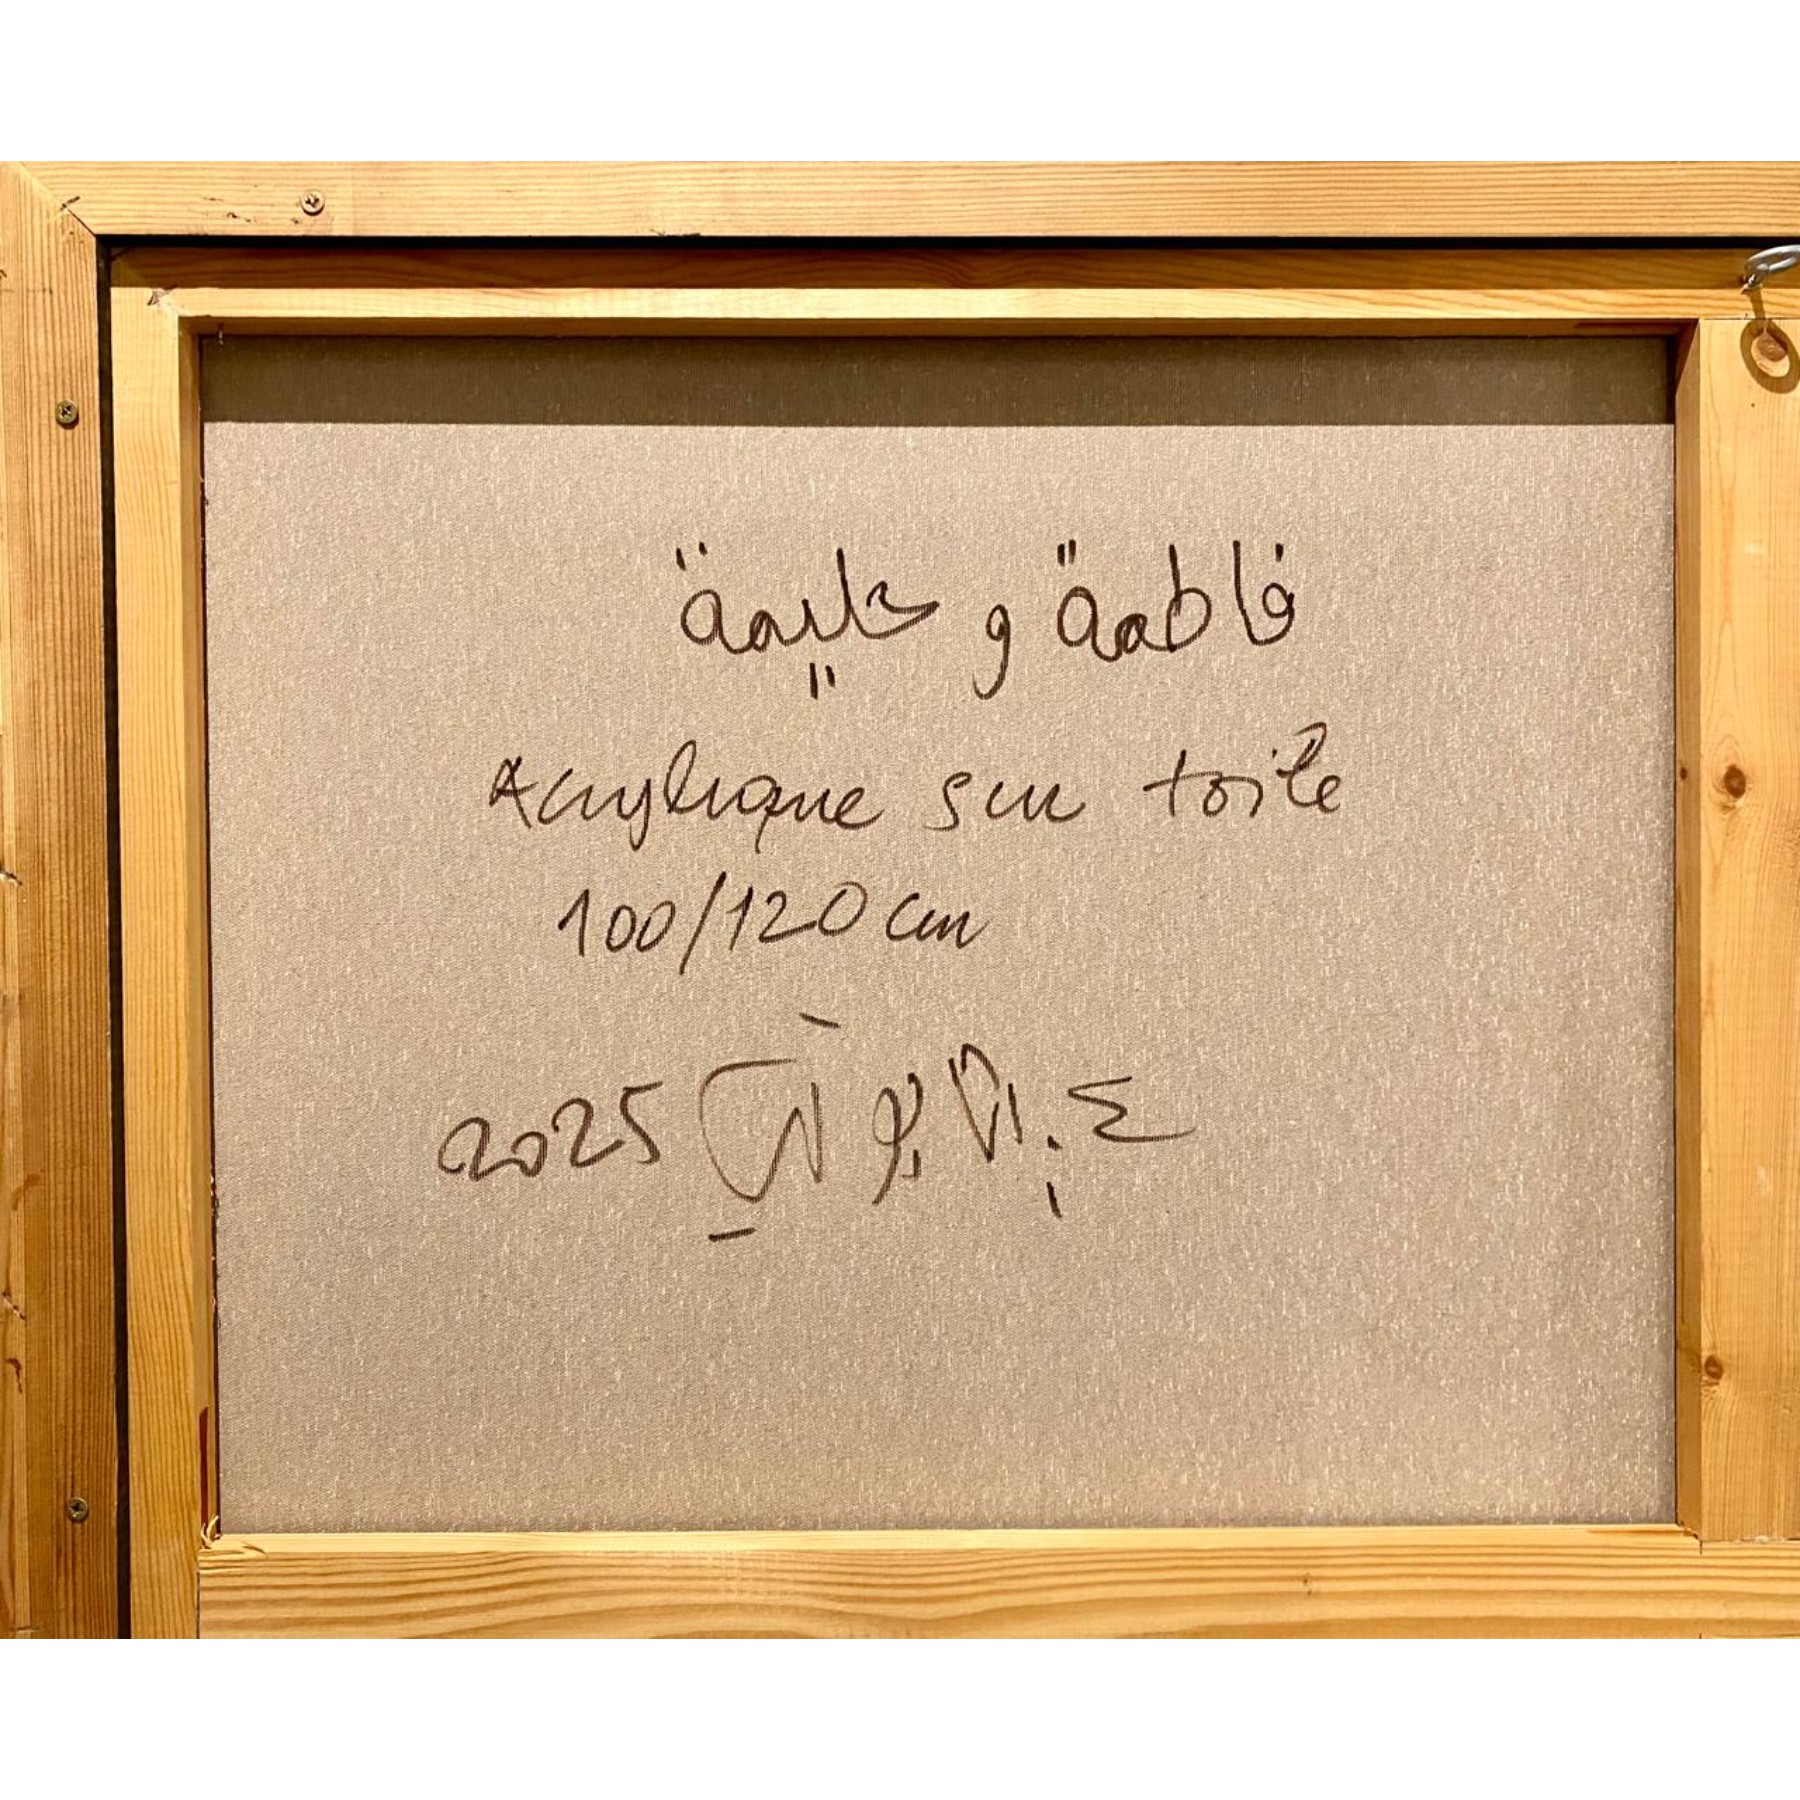 فاطمة و حليمة
Acrylique sur toile
100/120 cm
2025